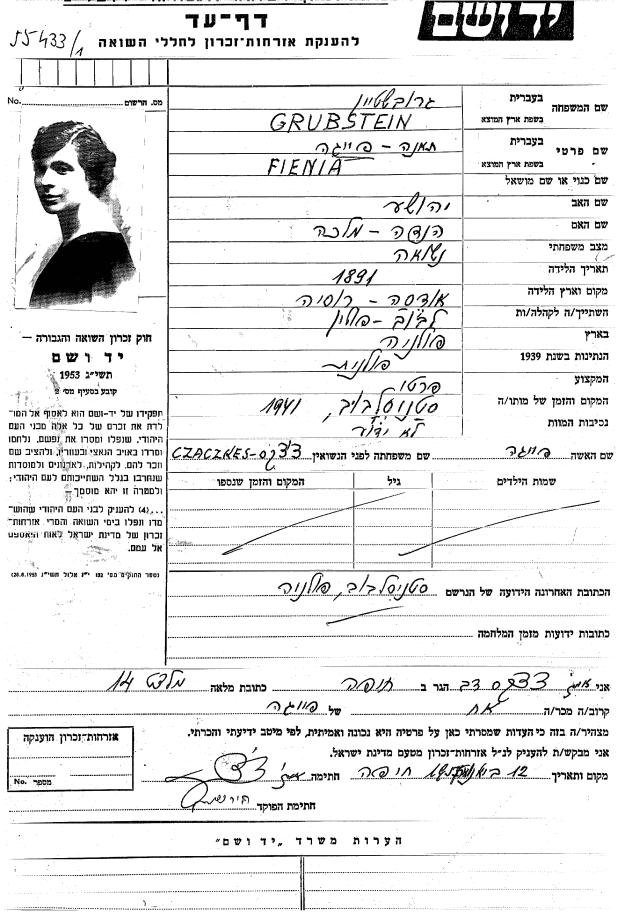 יד ושם
דף-עד
להענקת אזרחות-זכרון לחללי השואה
55433/1
מס. הרשום
No.
שם המשפחה
בעברית
גרובשטיין
בשפת ארץ המוצא
GRUBSTEIN
שם פרטי
בעברית
פייגה
בשפת ארץ המוצא
FIENIA
שם כנוי או שם מושאל
שם האב
יהושע
שם האם
מלכה
מצב משפחתי
נשואה
תאריך הלידה
1891
מקום וארץ הלידה
אודסה - רוסיה
השתייך/ה לקהלה/ות
לבוב - פולין
בארץ
פולניה
הנתינות בשנת 1939
פולנית
המקצוע
המקום והזמן של מותו/ה
סטניסלבוב, 1941
נסיבות המוות
לא ידוע
שם האשה
פייגה
שם משפחתה לפני הנשואין
CZACZKES-צ'צ'קס
שמות הילדים
גיל
המקום והזמן שנספו
הכתובת האחרונה הידועה של הנרשם
סטניסלבוב, פולניה
כתובות ידועות מזמן המלחמה
חוק זכרון השואה והגבורה —
יד ושם
תשי״ג 1953
קובע בסעיף מס׳ 2
תפקידו של יד-ושם הוא לאסוף אל המו־
לדת את זכרם של כל אלה מבני העם
היהודי, שנפלו ומסרו את נפשם, נלחמו
ומרדו באויב הנאצי ובעוזריו, ולהציב שם
וזכר להם, לקהילות, לארגונים ולמוסדות
שנחרבו בגלל השתייכותם לעם היהודי;
ולמטרה זו יהא מוסמך —
...(4) להענק לבני העם היהודי שהוש־
מדו ונפלו בימי השואה והמרי אזרחות־
זכרון של מדינת ישראל לאות היאספם
אל עמם.
אני
צ'צ'קס דב
הגר ב
חיפה
כתובת מלאה
14
קרוב/ה מכר/ה
אח
של
פייגה
מצהיר/ה בזה כי העדות שמסרתי כאן על פרטיה היא נכונה ואמיתית, לפי מיטב ידיעתי והכרתי.
אני מבקש/ת להעניק לנ״ל אזרחות-זכרון מטעם מדינת ישראל.
מקום ותאריך
חיפה 12
חתימה
חתימת הפוקד
אזרחות-זכרון הוענקה
מספר
No.
הערות משרד „יד ושם"